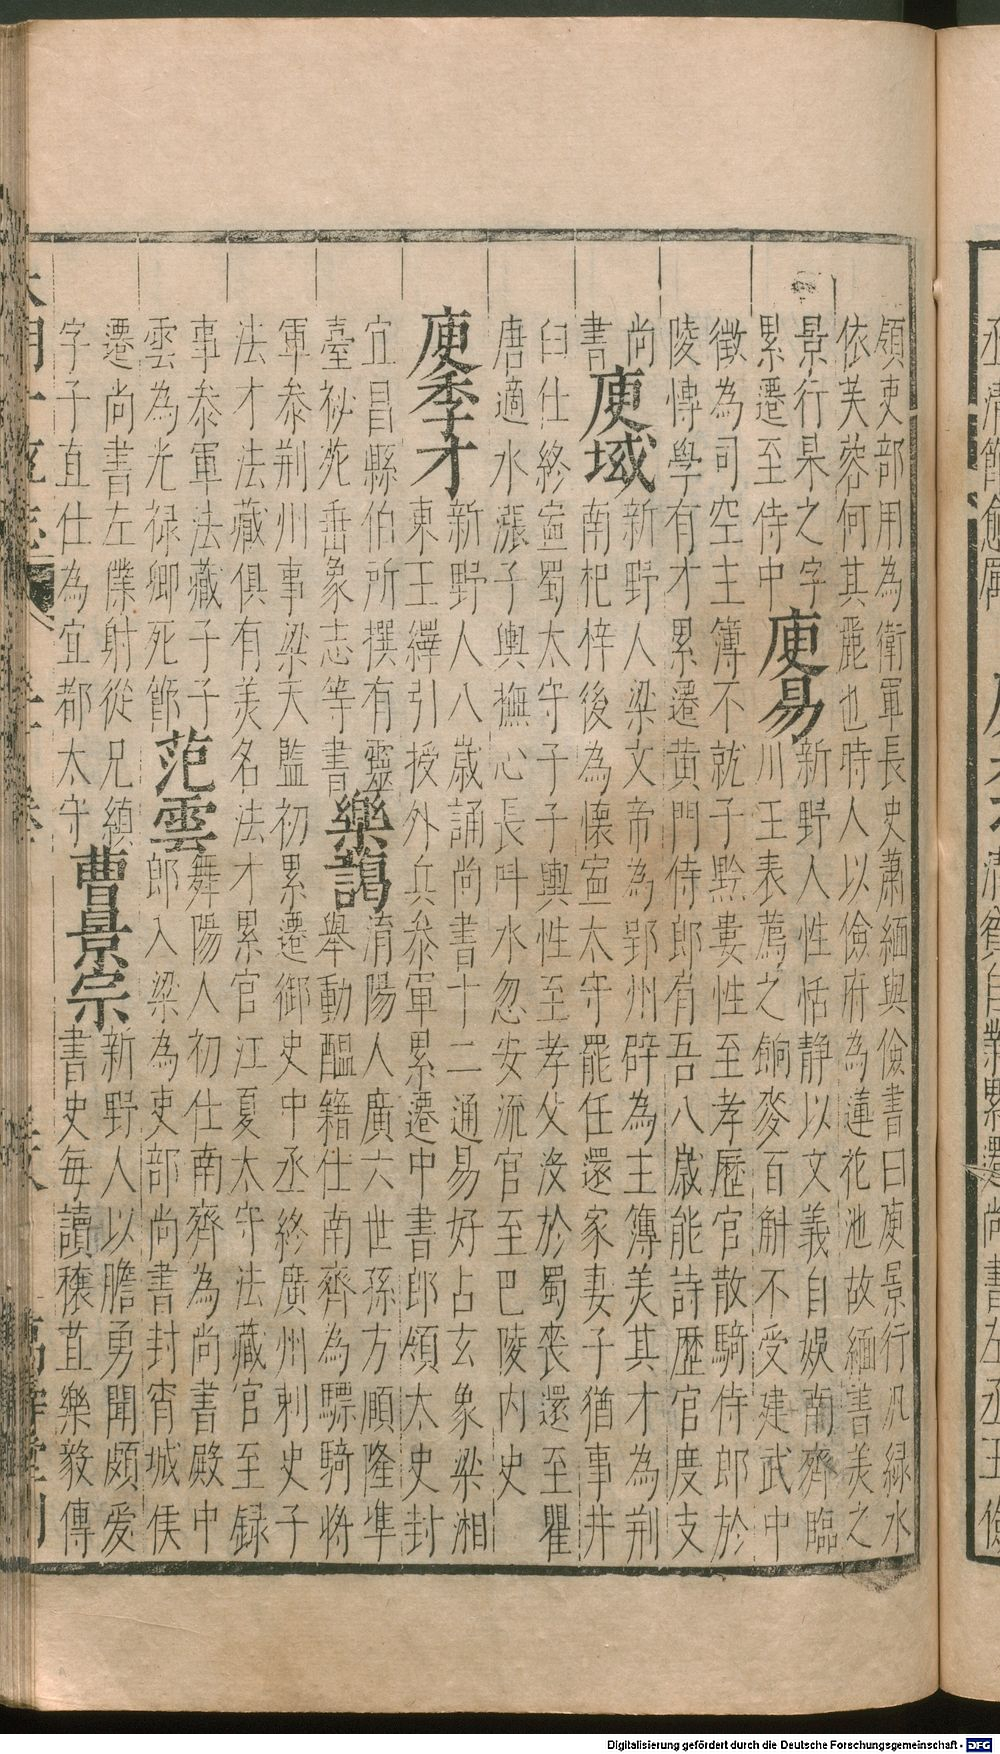 領吏部用為衛軍長史蕭緬與儉書曰庾景行汎綠水
依芙蓉何其麗也時人以儉府為蓮花池故緬書美之
景行杲之字庾易新野人性恬靜以文義自娛南齊臨
累遷至侍中川王表薦之餉麥百斛不受建武中
徵為司空主簿不就子黔婁性至孝歷官散騎侍郎於
陵慱學有才累遷黃門侍郎肩吾八歲能詩歷官度支
尚新野人梁文帝為郢州辟為主簿美其才為荆
書庾域南杞梓後為懷寍太守罷任還家妻子猶事井
臼仕終寍蜀太守子子輿性至孝父沒於蜀䘮還至瞿
唐適水漲子輿撫心長呌水忽安流官至巴陵內史
庾季才新野人八歲誦尚書十二通易好占玄象梁湘
東王繹引授外兵叅軍累遷中書郎領太史封
宜昌縣伯所撰有靈樂藹淯陽人廣六世孫方頤隆準
臺祕苑垂象志等書舉動醞籍仕南齊為驃騎將
軍叅荆州事梁天監初累遷御史中丞終廣州刺史子
法才法藏俱有美名法才累官江夏太守法藏官至録
事叅軍法藏子子范雲舞陽人初仕南齊為尚書殿中
雲為光祿卿死節郎入梁為吏部尚書封宵城侯
遷尚書左僕射從兄縝曹景宗新野人以膽勇聞頗爱
字子直仕為宜都太守書史每讀穰苴樂毅傳